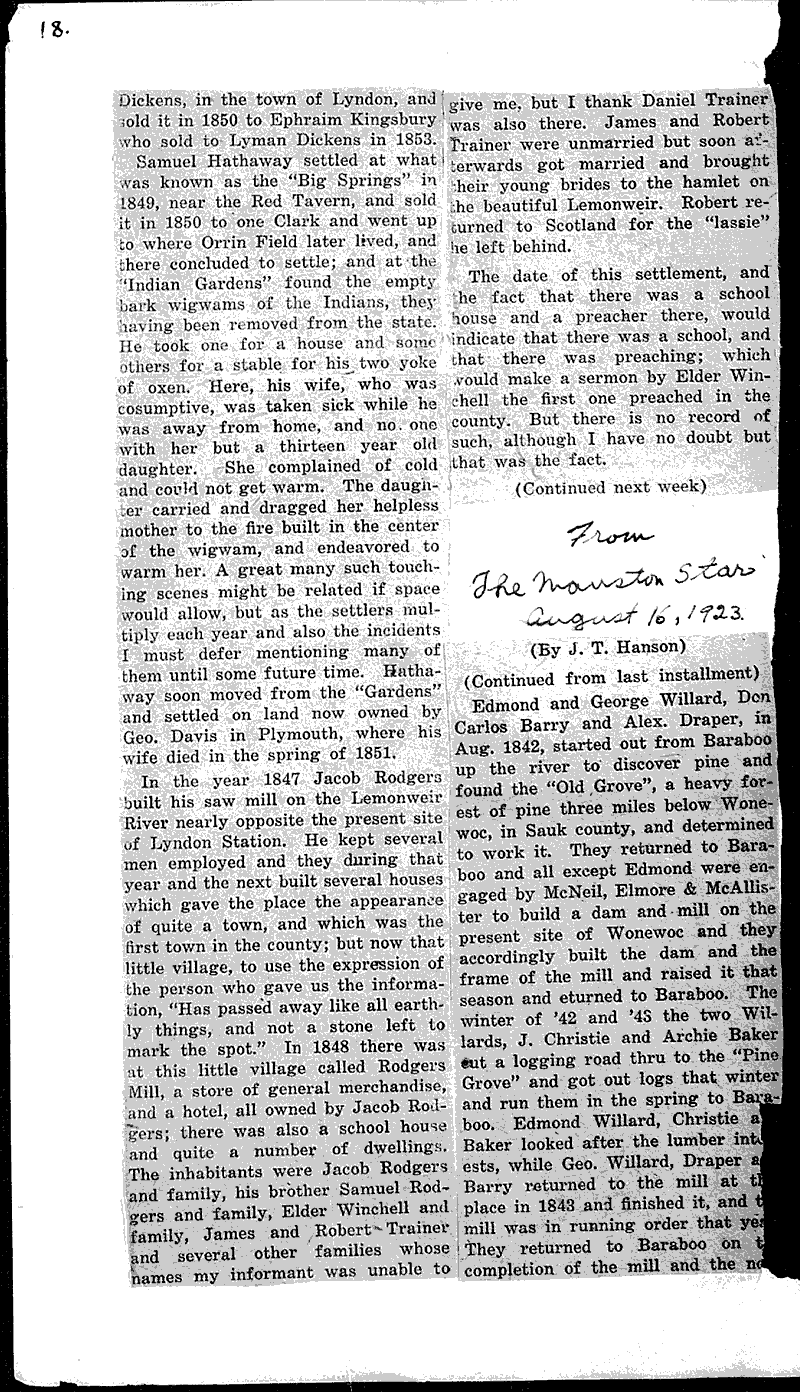 18.
Dickens, in the town of Lyndon, and
sold it in 1850 to Ephraim Kingsbury
who sold to Lyman Dickens in 1853.
Samuel Hathaway settled at what
was known as the "Big Springs" in
1849, near the Red Tavern, and sold
it in 1850 to one Clark and went up
to where Orrin Field later lived, and
there concluded to settle; and at the
"Indian Gardens" found the empty
bark wigwams of the Indians, they
having been removed from the state.
He took one for a house and some
others for a stable for his two yoke
of oxen. Here, his wife, who was
cosumptive, was taken sick while he
was away from home, and no one
with her but a thirteen year old
daughter. She complained of cold
and could not get warm. The daugh-
ter carried and dragged her helpless
mother to the fire built in the center
of the wigwam, and endeavored to
warm her. A great many such touch-
ing scenes might be related if space
would allow, but as the settlers mul-
tiply each year and also the incidents
I must defer mentioning many of
them until some future time. Hatha-
way soon moved from the "Gardens"
and settled on land now owned by
Geo. Davis in Plymouth, where his
wife died in the spring of 1851.
In the year 1847 Jacob Rodgers
built his saw mill on the Lemonweir
River nearly opposite the present site
of Lyndon Station. He kept several
men employed and they during that
year and the next built several houses
which gave the place the appearance
of quite a town, and which was the
first town in the county; but now that
little village, to use the expression of
the person who gave us the informa-
tion, "Has passed away like all earth-
ly things, and not a stone left to
mark the spot." In 1848 there was
at this little village called Rodgers
Mill, a store of general merchandise,
and a hotel, all owned by Jacob Rod-
gers; there was also a school house
and quite a number of dwellings.
The inhabitants were Jacob Rodgers
and family, his brother Samuel Rod-
gers and family, Elder Winchell and
family, James and Robert Trainer
and several other families whose
names my informant was unable to
give me, but I thank Daniel Trainer
was also there. James and Robert
Trainer were unmarried but soon af-
terwards got married and brought
their young brides to the hamlet on
the beautiful Lemonweir. Robert re-
turned to Scotland for the "lassie"
he left behind.
The date of this settlement, and
the fact that there was a school
house and a preacher there, would
indicate that there was a school, and
that there was preaching; which
would make a sermon by Elder Win-
chell the first one preached in the
county. But there is no record of
such, although I have no doubt but
that was the fact.
(Continued next week)
From
The Mauston Star
August 16, 1923.
(By J. T. Hanson)
(Continued from last installment)
Edmond and George Willard, Don
Carlos Barry and Alex. Draper, in
Aug. 1842, started out from Baraboo
up the river to discover pine and
found the "Old Grove", a heavy for-
est of pine three miles below Wone-
woc, in Sauk county, and determined
to work it. They returned to Bara-
boo and all except Edmond were en-
gaged by McNeil, Elmore & McAllis-
ter to build a dam and mill on the
present site of Wonewoc and they
accordingly built the dam and the
frame of the mill and raised it that
season and eturned to Baraboo. The
winter of '42 and '43 the two Wil-
lards, J. Christie and Archie Baker
cut a logging road thru to the "Pine
Grove" and got out logs that winter
and run them in the spring to Bara-
boo. Edmond Willard, Christie a
Baker looked after the lumber int
ests, while Geo. Willard, Draper a
Barry returned to the mill at th
place in 1843 and finished it, and t
mill was in running order that yea
They returned to Baraboo on t
completion of the mill and the ne